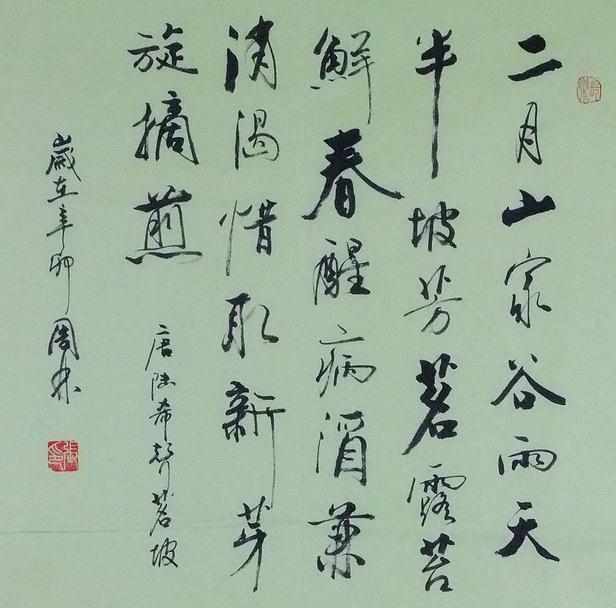 二月山家谷雨天
半坡芳茗露
鮮春醒病酒兼
消渴惜取新芽
旋摘煎
唐陸希聲茗坡
歲在辛卯周